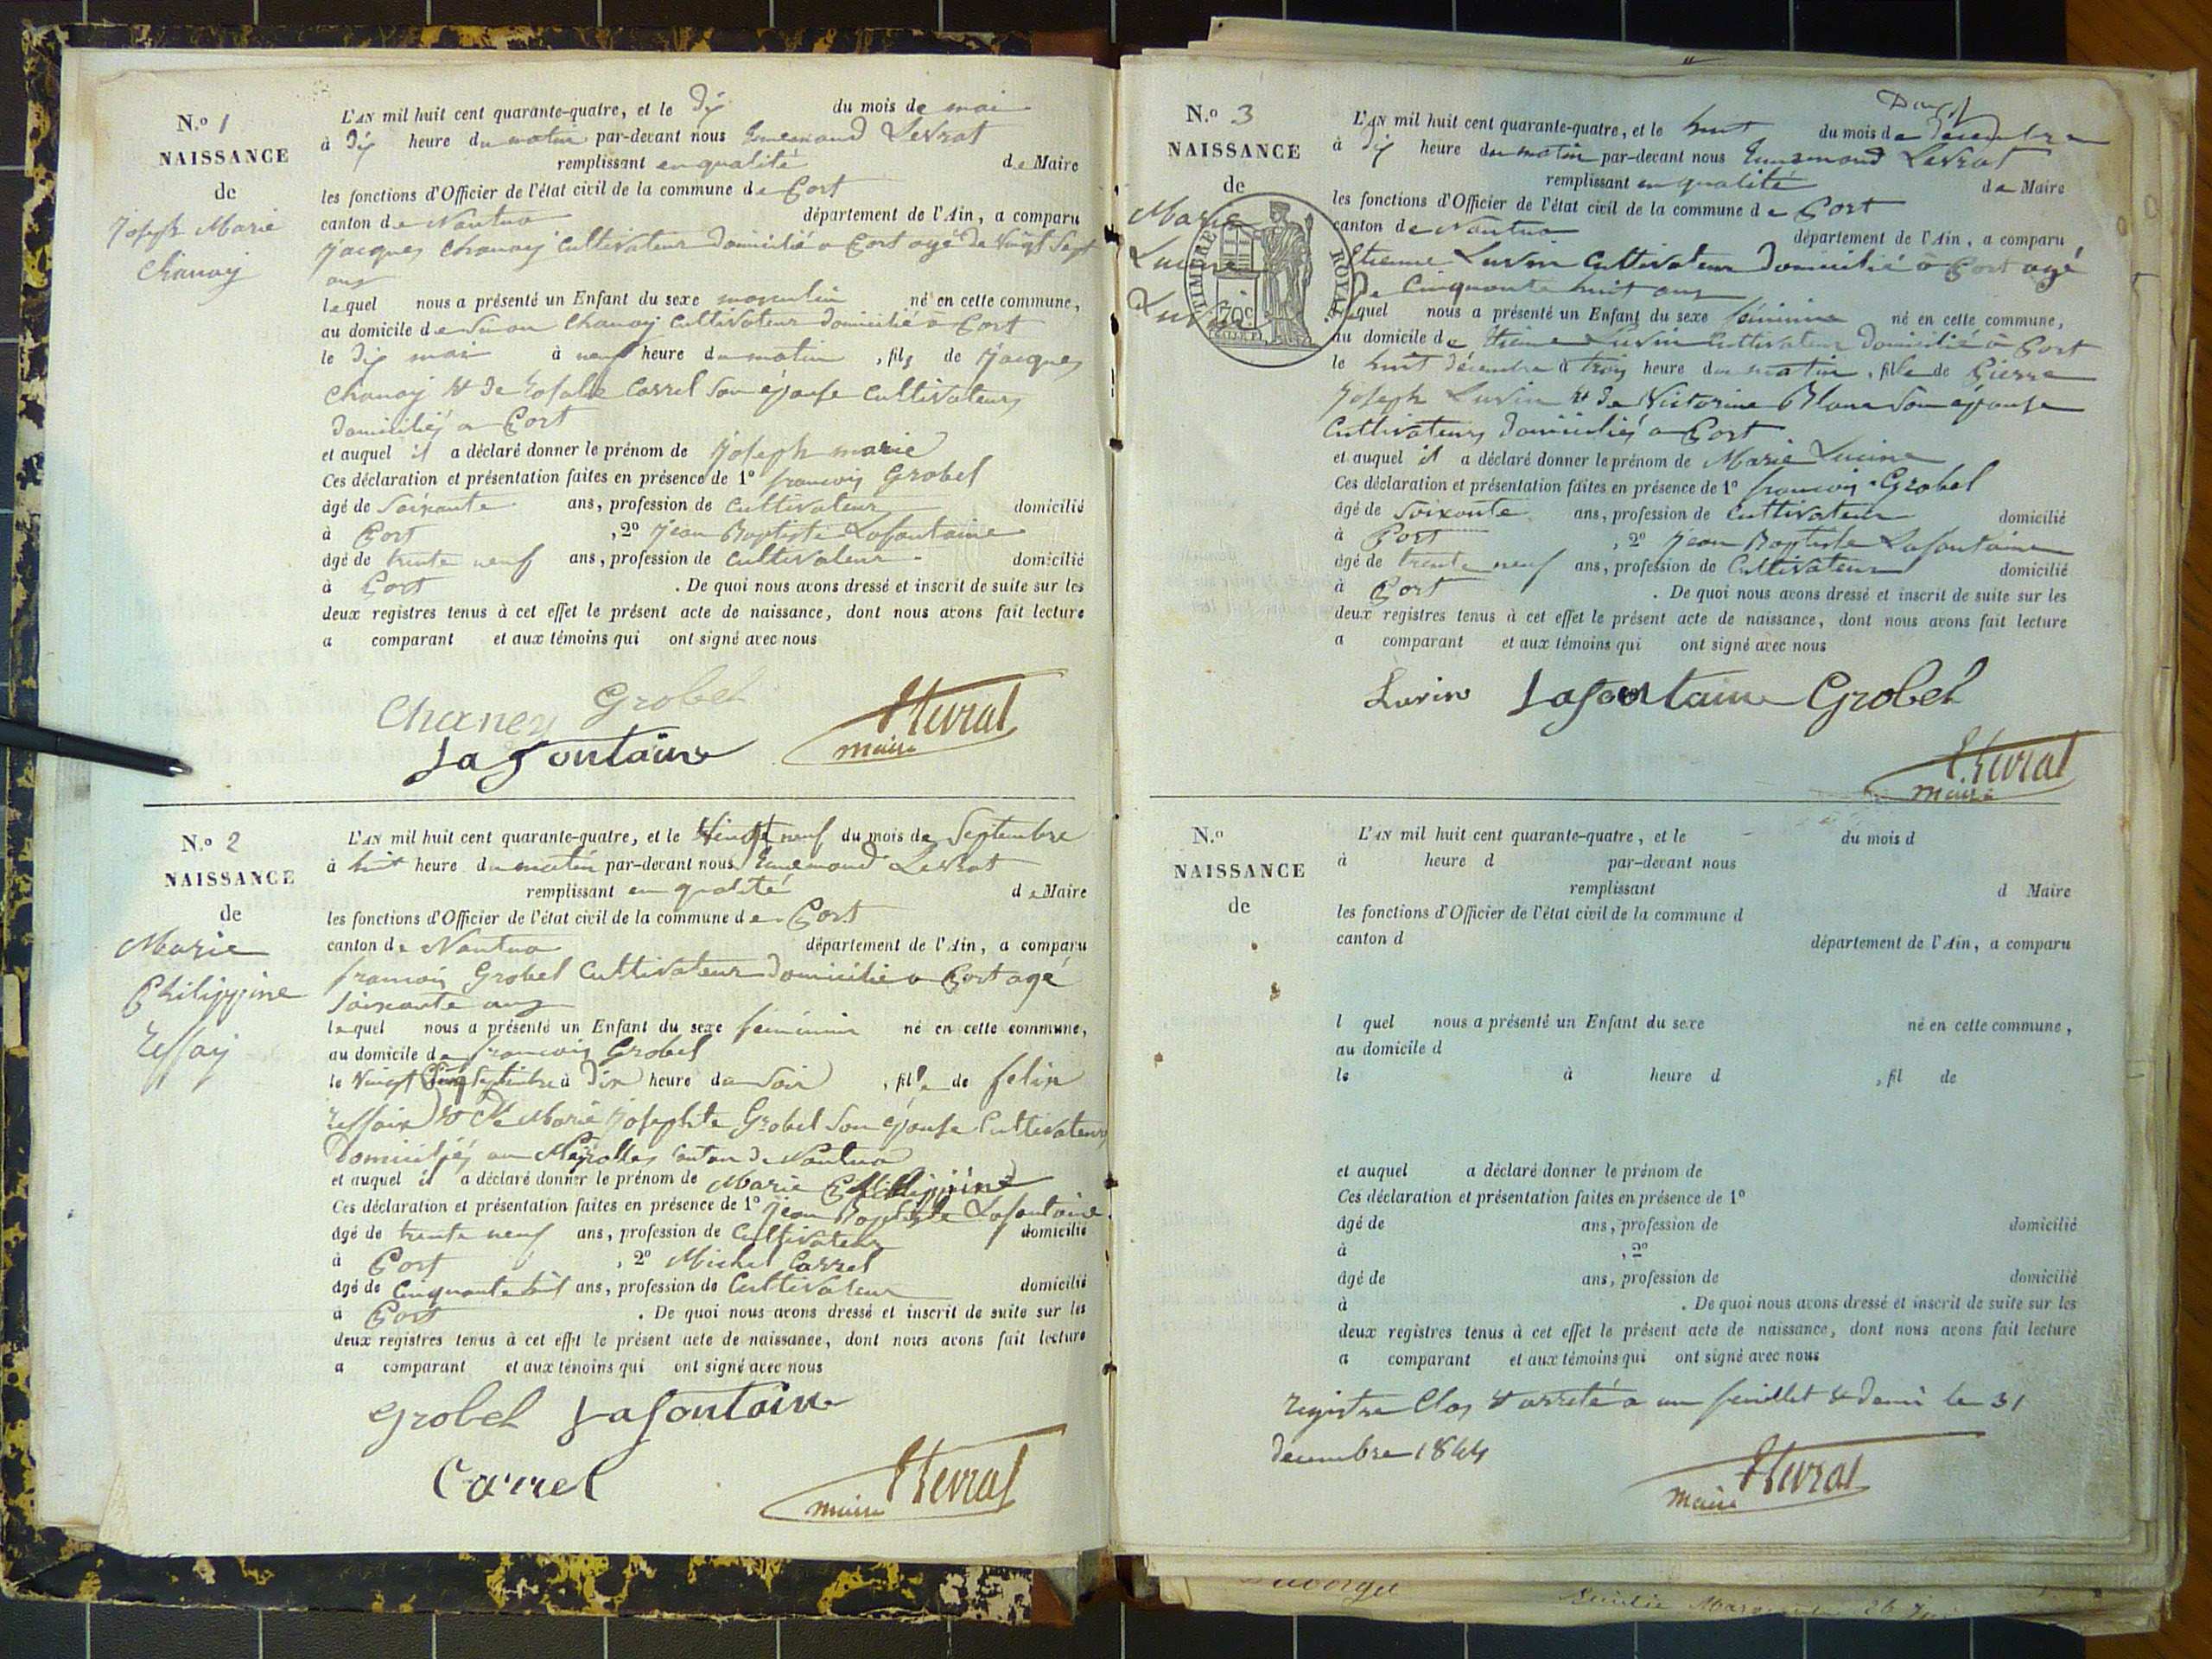 N.° 1
NAISSANCE
de
Joseph Marie
Chanay
L'AN mil huit cent quarante-quatre, et le dix du mois de mai
à dix heure du matin par-devant nous Ennemond Levrat
remplissant en qualité de Maire
les fonctions d'Officier de l'état civil de la commune de Port
canton de Nantua département de l'Ain, a comparu
Jacques Chanay cultivateur domicilié a Port agé de vingt sept
ans
lequel nous a présenté un Enfant du sexe masculin né en cette commune,
au domicile de Chanay cultivateur domicilié a Port
le dix mai à neuf heure du matin, fils de Jacques
Chanay et de Rosalie Carrel son épouse cultivateurs
domiciliés a Port
et auquel il a déclaré donner le prénom de Joseph marie
Ces déclaration et présentation faites en présence de 1° francois Grobel
âgé de soixante ans, profession de cultivateur domicilié
à Port, 2° Jean Baptiste Lafontaine
âgé de trente neuf ans, profession de cultivateur domicilié
à Port. De quoi nous avons dressé et inscrit de suite sur les
deux registres tenus à cet effet le présent acte de naissance, dont nous avons fait lecture
a comparant et aux témoins qui ont signé avec nous
Chaney Grobel
Lafontaine Levrat
maire
N.° 2
NAISSANCE
de
Marie
Philippine
L'AN mil huit cent quarante-quatre, et le vingt neuf du mois de Septembre
à huit heure du matin par-devant nous Ennemond Levrat
remplissant en qualité de Maire
les fonctions d'Officier de l'état civil de la commune de Port
canton de Nantua département de l'Ain, a comparu
francois Grobel cultivateur domicilié a Port agé
soixante ans
lequel nous a présenté un Enfant du sexe féminin né en cette commune,
au domicile de francois Grobel
le vingt Septembre à dix heure du soir, fille de felix
et de Marie Josephte Grobel son épouse cultivateurs
domiciliés au canton de Nantua
et auquel il a déclaré donner le prénom de Marie Philippine
Ces déclaration et présentation faites en présence de 1° Jean Baptiste Lafontaine
âgé de trente neuf ans, profession de cultivateur domicilié
à Port, 2° Michel Carrel
âgé de cinquante ans, profession de cultivateur domicilié
à Port. De quoi nous avons dressé et inscrit de suite sur les
deux registres tenus à cet effet le présent acte de naissance, dont nous avons fait lecture
a comparant et aux témoins qui ont signé avec nous
Grobel Lafontaine
Carrel Levrat
maire
N.° 3
NAISSANCE
de
Marie
Lucine
Luvin
TIMBRE ROYAL
70c
L'AN mil huit cent quarante-quatre, et le huit du mois de décembre
à dix heure du matin par-devant nous Ennemond Levrat
remplissant en qualité de Maire
les fonctions d'Officier de l'état civil de la commune de Port
canton de Nantua département de l'Ain, a comparu
Etienne Luvin cultivateur domicilié a Port agé
de cinquante huit ans
lequel nous a présenté un Enfant du sexe féminin né en cette commune,
au domicile de Etienne Luvin cultivateur domicilié a Port
le huit décembre à trois heure du matin, fille de Pierre
Joseph Luvin et de Victorine Blanc son épouse
cultivateurs domiciliés a Port
et auquel il a déclaré donner le prénom de Marie Lucine
Ces déclaration et présentation faites en présence de 1° francois Grobel
âgé de soixante ans, profession de cultivateur domicilié
à Port, 2° Jean Baptiste Lafontaine
âgé de trente neuf ans, profession de cultivateur domicilié
à Port. De quoi nous avons dressé et inscrit de suite sur les
deux registres tenus à cet effet le présent acte de naissance, dont nous avons fait lecture
a comparant et aux témoins qui ont signé avec nous
Luvin Lafontaine Grobel
Levrat
maire
N.°
NAISSANCE
de
L'AN mil huit cent quarante-quatre, et le du mois d
à heure d par-devant nous
remplissant d Maire
les fonctions d'Officier de l'état civil de la commune d
canton d département de l'Ain, a comparu
l quel nous a présenté un Enfant du sexe né en cette commune,
au domicile d
le à heure d, fil de
et auquel a déclaré donner le prénom de
Ces déclaration et présentation faites en présence de 1°
âgé de ans, profession de domicilié
à, 2°
âgé de ans, profession de domicilié
à. De quoi nous avons dressé et inscrit de suite sur les
deux registres tenus à cet effet le présent acte de naissance, dont nous avons fait lecture
a comparant et aux témoins qui ont signé avec nous
registre clos et arreté a un feuillet et demi le 31
decembre 1844
Levrat
maire